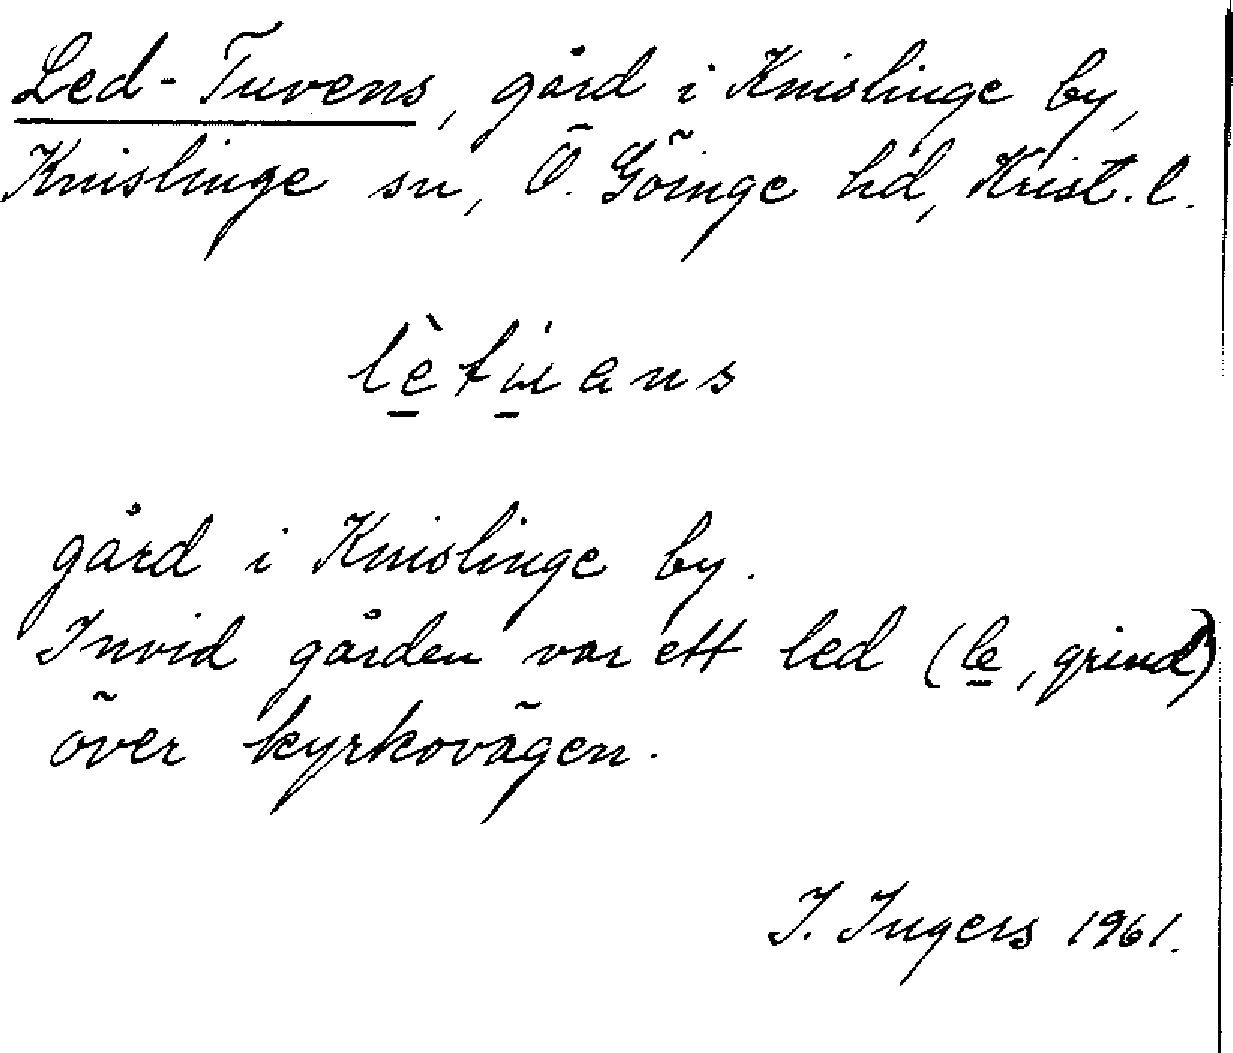 Led-Tuvens, gård i Knislinge by,
Knislinge sn, Ö. Göinge hd, Krist. l.
gård i Knislinge by.
Invid gården var ett led (le, grind)
över kyrkovägen.
I. Ingers 1961.